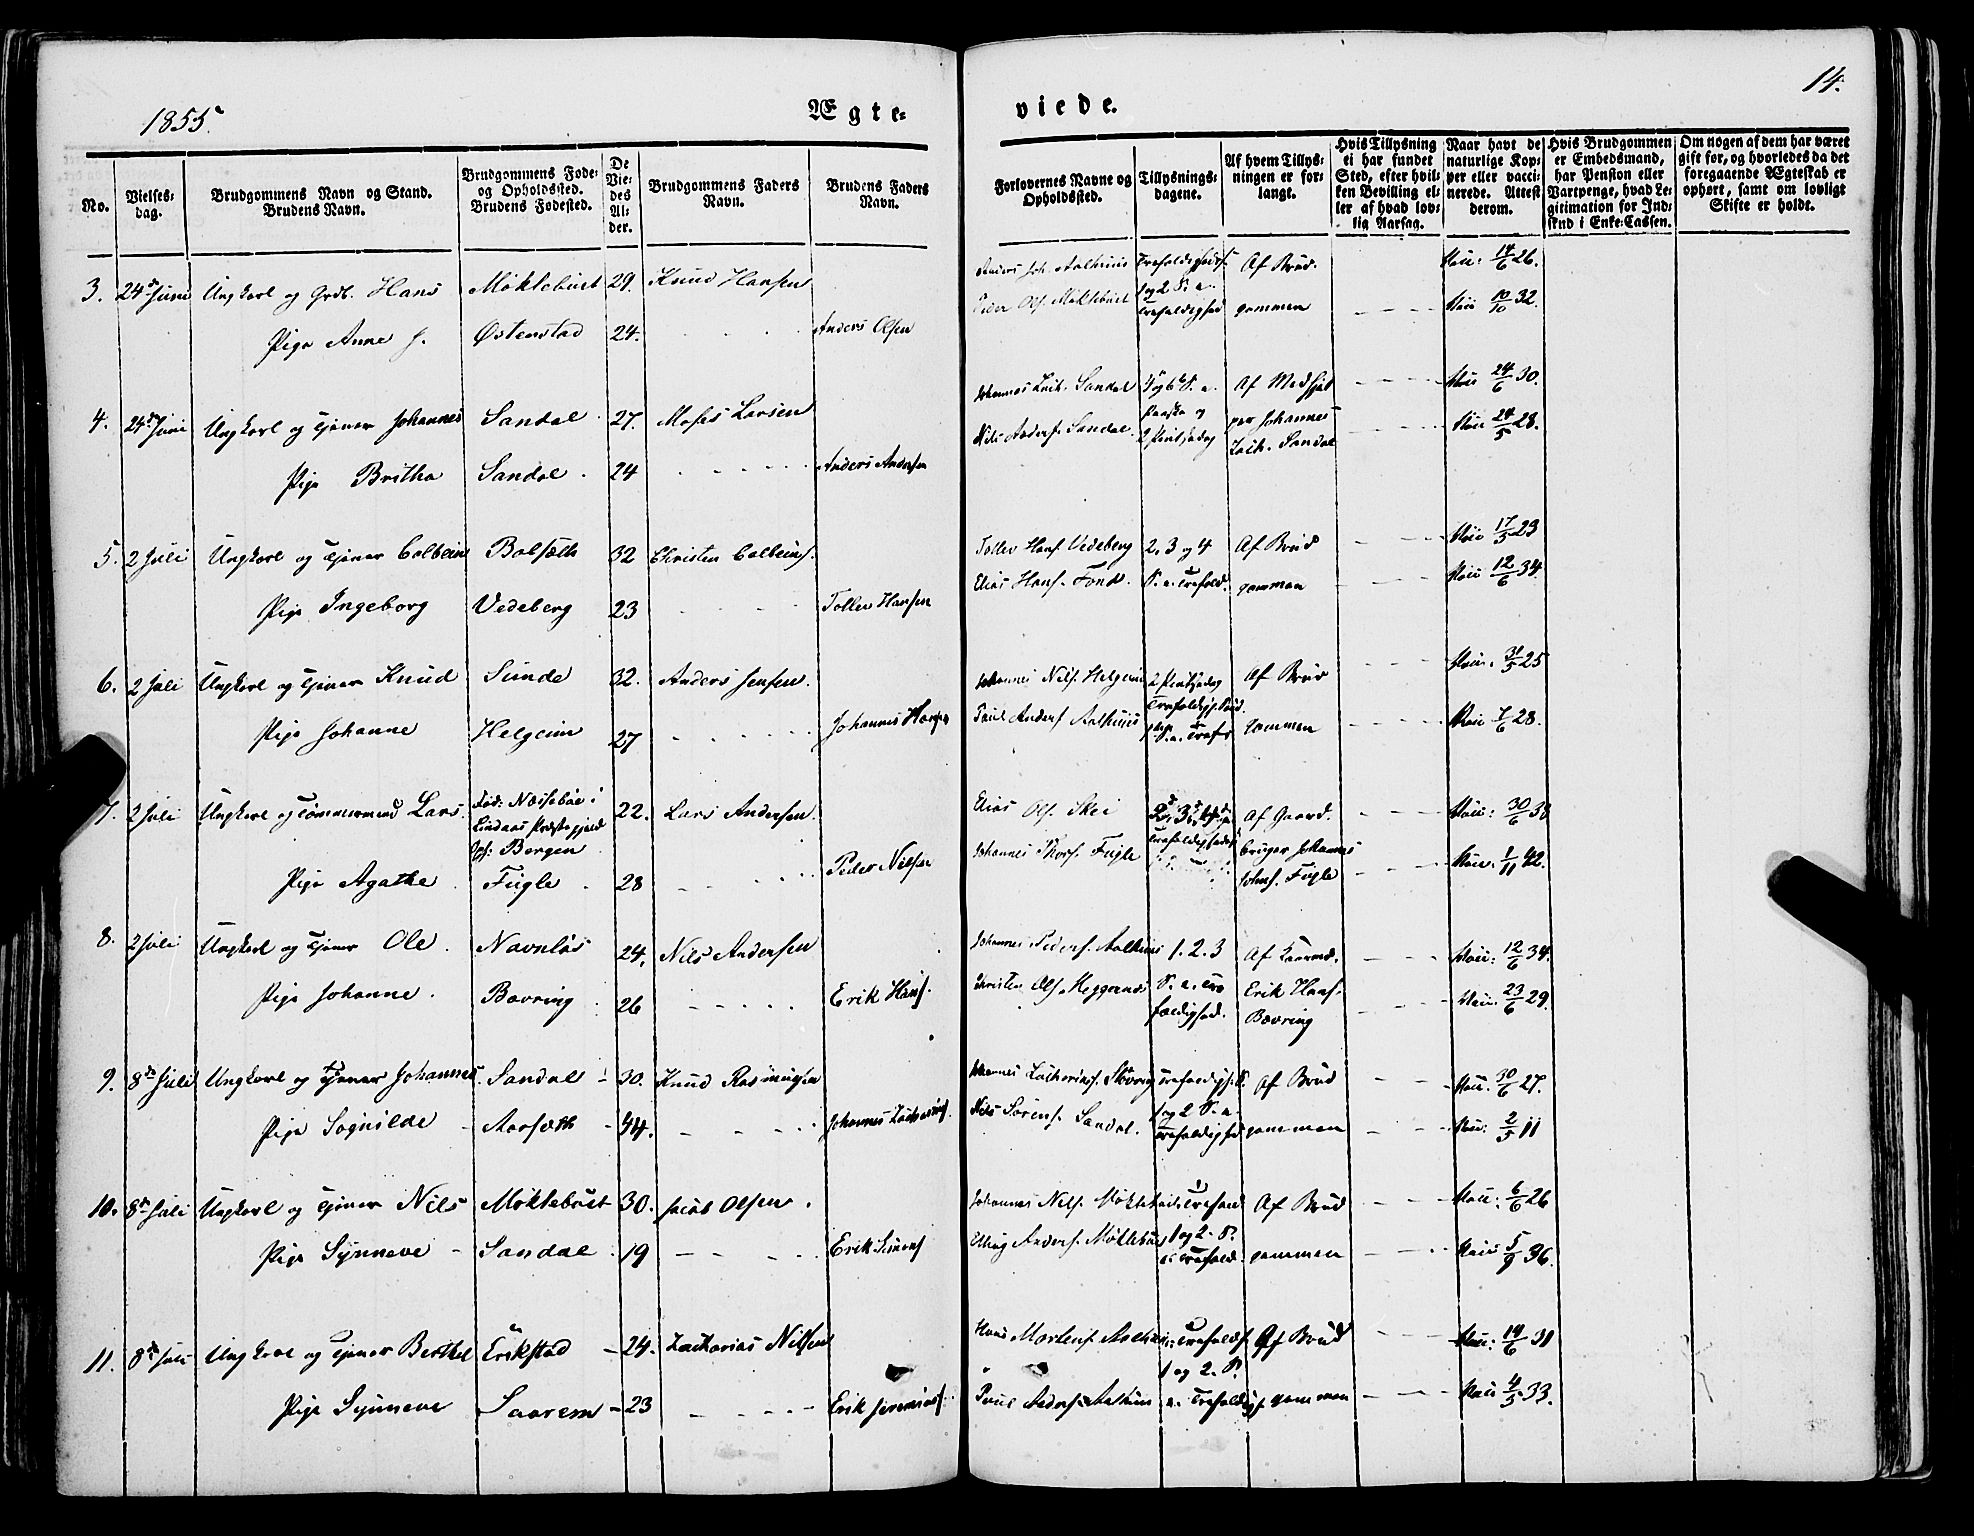 1855.
Ægte-
viede.
14.
No.
Vielses-
dag.
Brudgommens Navn og Stand.
Brudens Navn.
Brudgommens Føde-
og Opholdssted.
Brudens Fødested.
De
Vie-
des
Al-
der.
Brudgommens Faders
Navn.
Brudens Faders
Navn.
Forlovernes Navne og
Opholdssted.
Tillysnings-
dagene.
Af hvem Tillys-
ningen er for-
langt.
Hvis Tillysning
ei har fundet
Sted, efter hvil-
ken Bevilling el-
ler af hvad lov-
lig Aarsag.
Naar havt de
naturlige Kop-
per eller vacci-
nerede. Attest
derom.
Hvis Brudgommen
er Embedsmand,
har Pension eller
Vartpenge, hvad Le-
gitimation for Ind-
skud i Enke-Cassen.
Om nogen af dem har været
gift før, og hvorledes da det
foregaaende Ægteskab er
ophørt, samt om lovligt
Skifte er holdt.
3. 24de Juni Ungkarl og Grdb. Hans Møklebust 29. Knud Hansen
Pige Anne J. Østenstad 24. Anders Olsen
Anders Joh. Aalhuus Trefoldigheds. Af Brud- 14/6 26.
Peder Ols. Møklebust 1 og 2 S. e. Trefoldighed gommen 10/10 32.
4. 24de Juni Ungkarl og Tjener Johannes Sandal 27. Moses Larsen
Pige Britha Sandal. 24 Anders Andersen
Johannes Zach. Sandal 5 og 6 S. e. Af Medhjæl 24/6 30.
Nils Anders. Sandal. Paaske og 2 Pintsedag per Johannes Zach. Sandal 24/5 28.
5. 2 Juli Ungkarl og Tjener Colbein Bolsæth 32 Christen Colbeins.
Pige Ingeborg Vedeberg 23 Tollev Hansen
Tollev Hans. Vedeberg 2, 3 og 4 Af Brud 17/5 23
Elias Hans. Fond. S. e. Trefold. gommen 12/6 34.
6. 2 Juli Ungkarl og Tjener Knud Sunde 32. Anders Jensen.
Pige Johanne Helgeim 27 Johannes Hansen
Johannes Nils. Helgeim 2 Pintsedag Af Brud 31/5 25
Paul Anders. Aalhuus Trefoldigh. S. e. Tref. gommen 7/6 28.
7. 2 Juli Ungkarl og Tømmermand Lars. Fød: Næsebøe i 22. Lars Andersen.
Lindaas Præstegjeld
Bergen
Pige Agathe Fugle. 28 Peder Nilsen
Elias Ols. Skei Af Gaard- 30/6 38
Johannes Thors. Fugle bruger Johannes Johns. Fugle 1/11 42.
8. 2 Juli Ungkarl og Tjener Ole. Navnløs 24. Nils Andersen
Pige Johanne. Bovring 26 Erik Hans.
Johannes Peders. Aalhuus 1. 2. 3 Af Kaarmd. 12/6 34.
Christen Ols. S. e. Tre foldighed. Erik Hans. Bovring 23/6 29.
9. 8de Juli Ungkarl og Tjener Johannes Sandal 30. Knud Rasmusen
Pige Sognilde Aarsæth 44. Johannes Zacharias.
Johannes Zacharias. Trefoldigh. S. Af Brud 30/6 27.
Nils Sørens. Sandal. 1 og 2 S. e. Trefoldighed gommen 2/5 11
10. 8de Juli Ungkarl og Tjener Nils Møklebust 30. Jacob Olsen.
Pige Synneve Sandal. 19 Erik Simens.
Johannes Nils. Trefold Af Brud 6/6 26
Anders. Møklebust 1 og 2. S. e. Trefold. gommen 5/9 36.
11. 8de Juli Ungkarl og Tjener Berthel Erikstad 24. Zacharias Nilsen
Pige Synneve Saarem 23 Erik Jeremias.
Hans Mortens. Trefold. Af Brud 19/6 31
1 og 2. S.
Paul Anders. Aalhuus e. Trefoldigh. gommen 4/5 33.